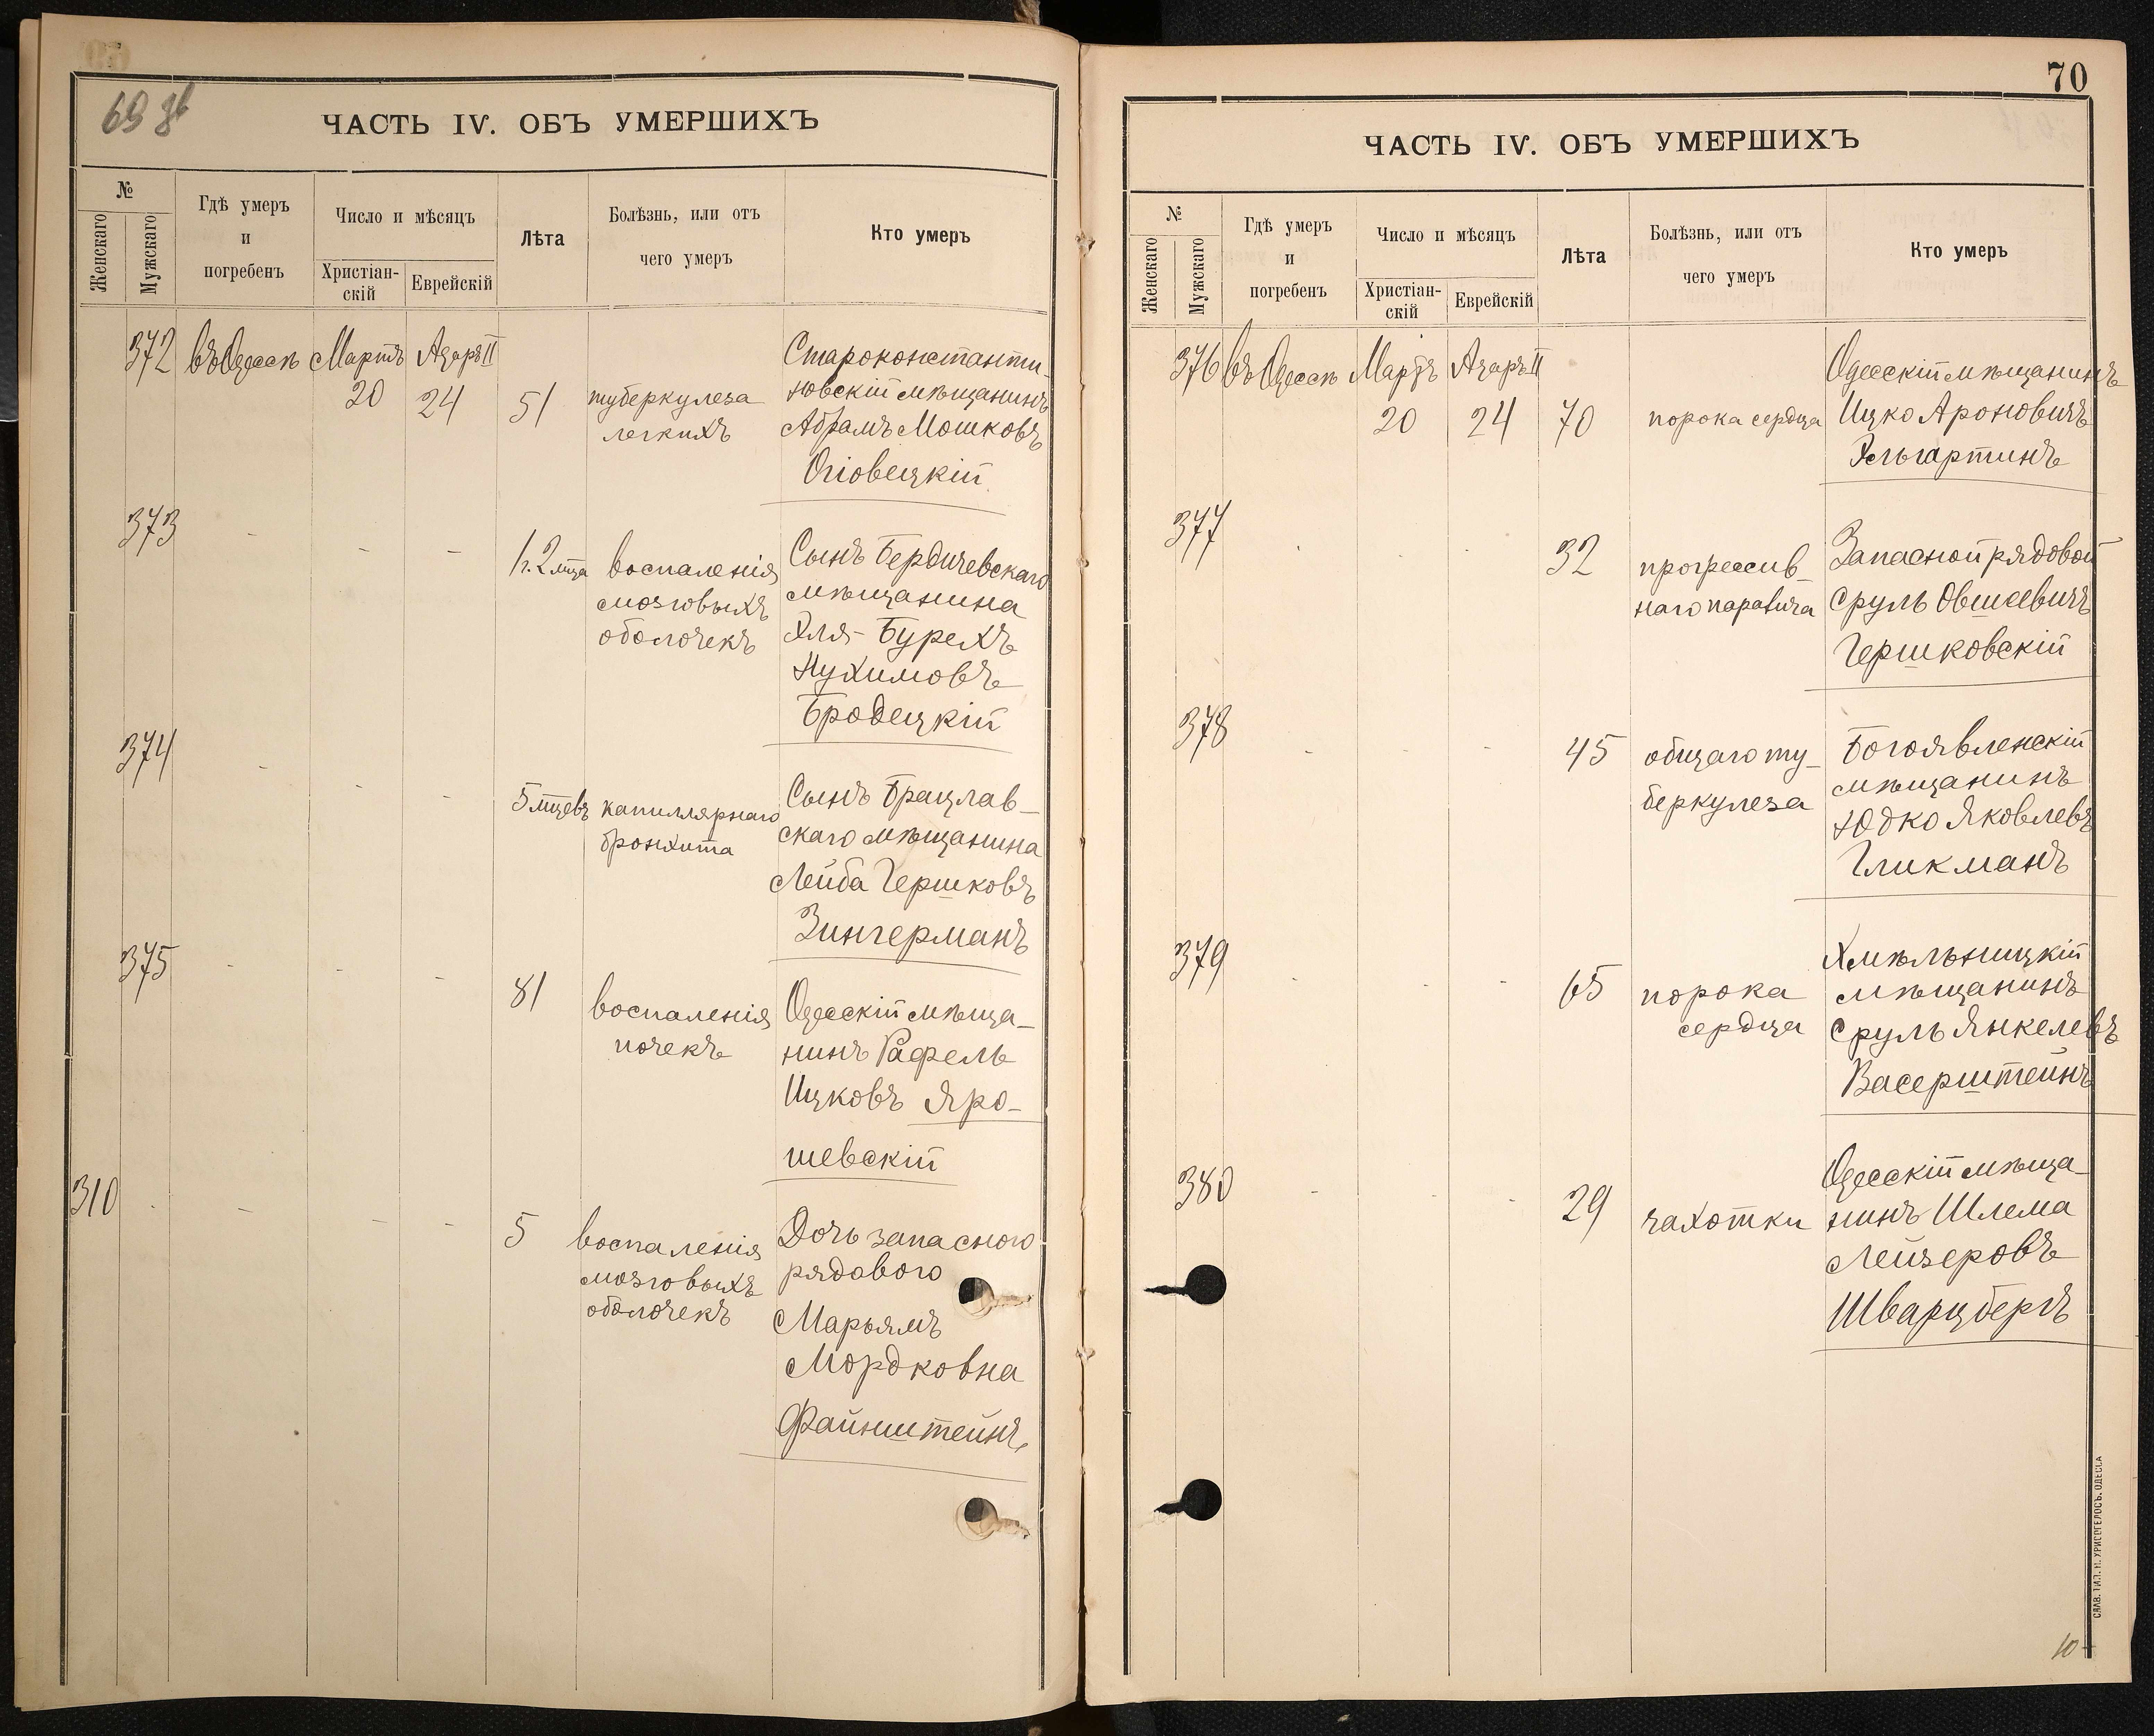 69 об
ЧАСТЬ IV. ОБЪ УМЕРШИХЪ
№
Женскаго
Мужскаго
Гдѣ умеръ
и
погребенъ
Число и мѣсяцъ
Христіан-
скій
Еврейскій
Лѣта
Болѣзнь, или отъ
чего умеръ
Кто умеръ
372 въ Одессѣ Мартъ Адаръ II
20 24 51 туберкулеза
легкихъ
Староконстанти-
новскій мѣщанинъ
Абрамъ Мошковъ
Огіовецкій
373 - - -
1 г. 2 мца воспаленія
мозговыхъ
оболочекъ
Сынъ Бердичевскаго
мѣщанина
Эля-Бурехъ
Нухимовъ
Бродецкій
374 - - -
5 мцевъ капиллярнаго
бронхита
Сынъ Брацлав-
скаго мѣщанина
Лейба Гершковъ
Зингерманъ
375 - - -
81 воспаленія
почекъ
Одесскій мѣща-
нинъ Рафель
Ицковъ Яро-
шевскій
310 - - - -
5 воспаленія
мозговыхъ
оболочекъ
Дочь запасного
рядового
Марьямъ
Мордковна
Файнштейнъ
70
ЧАСТЬ IV. ОБЪ УМЕРШИХЪ
№
Женскаго
Мужскаго
Гдѣ умеръ
и
погребенъ
Число и мѣсяцъ
Христіан-
скій
Еврейскій
Лѣта
Болѣзнь, или отъ
чего умеръ
Кто умеръ
376 въ Одессѣ Мартъ Адаръ II
20 24 70 порока сердца
Одесскій мѣщанинъ
Ицко Ароновичъ
Эльгартинъ
377 - - -
32 прогрессив-
наго паралича
Запасной рядовой
Сруль Овшевичъ
Гершковскій
378 - - -
45 общаго ту-
беркулеза
Богоявленскій
мѣщанинъ
Юдко Яковлевъ
Гликманъ
379 - - -
65 порока
сердца
Хмѣльницкій
мѣщанинъ
Сруль Янкелевъ
Васерштейнъ
380 - - -
29 чахотки
Одесскій мѣща-
нинъ Шлема
Лейзеровъ
Шварцбергъ
10